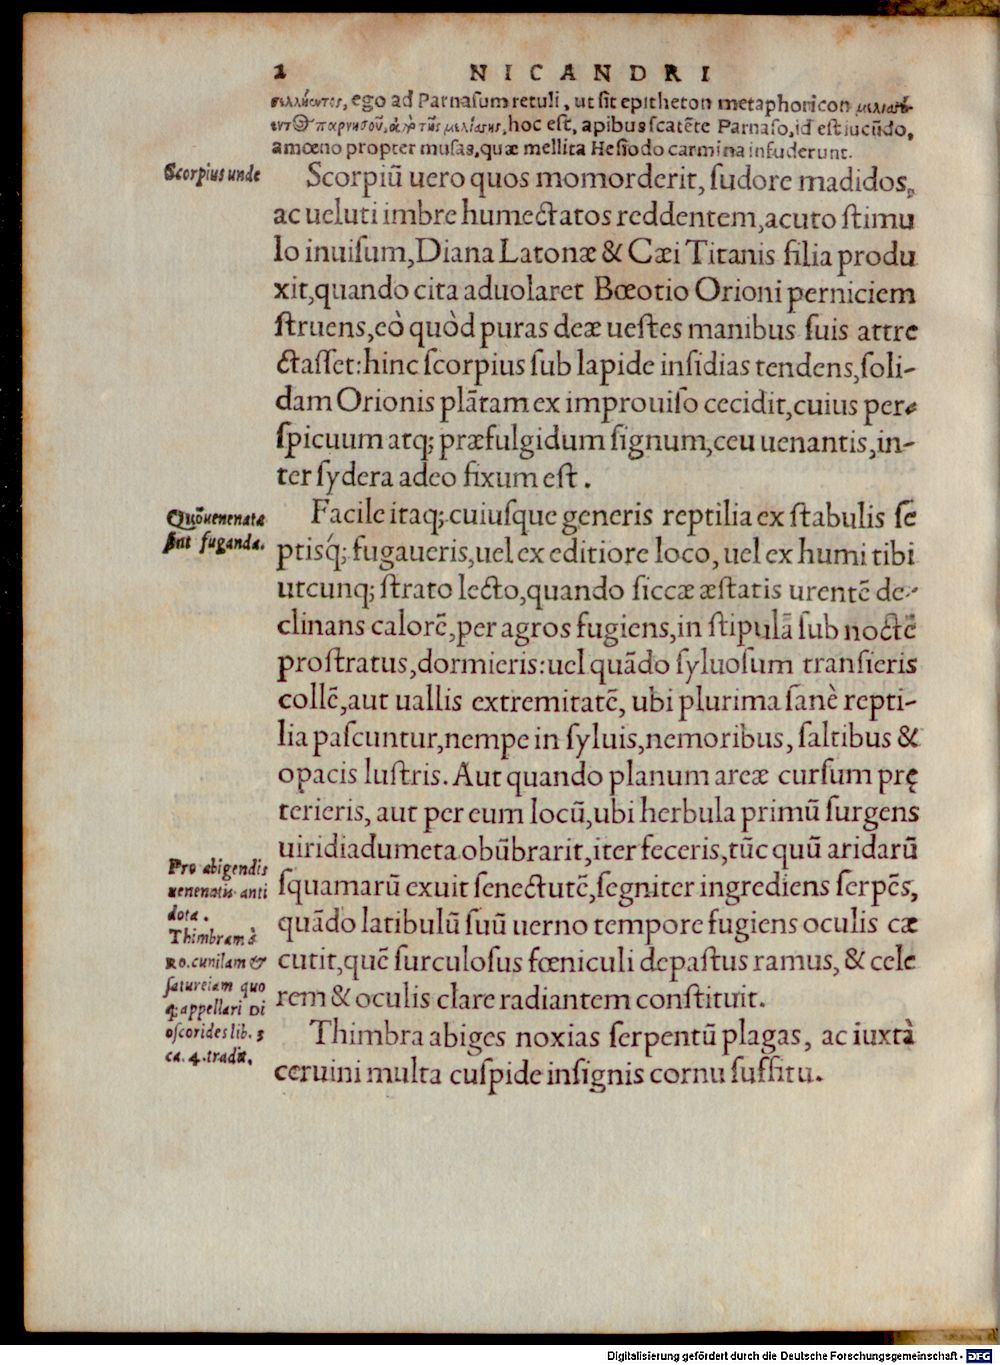 2 NICANDRI
ego ad Parnaſum retuli, ut ſit epitheton metaphoricon
παρνησοῦ, hoc eſt, apibus ſcatēte Parnaſo, id eſt iucūdo,
amœno propter muſas, quæ mellita Heſiodo carmina infuderunt.
Scorpius unde
Scorpiū uero quos momorderit, ſudore madidos,
ac ueluti imbre humectatos reddentem, acuto ſtimu
lo inuiſum, Diana Latonæ & Cæi Titanis filia produ
xit, quando cita aduolaret Bœotio Orioni perniciem
ſtruens, eò quòd puras deæ ueſtes manibus ſuis attre
ctaſſet: hinc ſcorpius ſub lapide inſidias tendens, ſoli-
dam Orionis plātam ex improuiſo cecidit, cuius per-
ſpicuum atq; præfulgidum ſignum, ceu uenantis, in-
ter ſydera adeo fixum eſt.
Quō uenenata
ſint fuganda.
Facile itaq; cuiuſque generis reptilia ex ſtabulis ſē
ptisq́; fugaueris, uel ex editiore loco, uel ex humi tibi
utcunq; ſtrato lecto, quando ſiccæ æſtatis urentē de-
clinans calorē, per agros fugiens, in ſtipulā ſub noctē
proſtratus, dormieris: uel quādo ſyluoſum tranſieris
collē, aut uallis extremitatē, ubi plurima ſanè repti-
lia paſcuntur, nempe in ſyluis, nemoribus, ſaltibus &
opacis luſtris. Aut quando planum areæ curſum prę
terieris, aut per eum locū, ubi herbula primū ſurgens
uiridia dumeta obūbrarit, iter feceris, tūc quū aridarū
ſquamarū exuit ſenectutē, ſegniter ingrediens ſerpēs,
quādo latibulū ſuū uerno tempore fugiens oculis cæ
cutit, quē ſurculoſus fœniculi depaſtus ramus, & cele
rem & oculis clare radiantem conſtituit.
Pro abigendis
uenenatis anti
dota.
Thimbram à
RO. cunilam &
ſatureiam quo
q; appellari DI
oſcorides lib. 3
ca. 4. tradit.
Thimbra abiges noxias ſerpentū plagas, ac iuxtà
ceruini multa cuſpide inſignis cornu ſuffitu.
Digitalisierung gefördert durch die Deutsche Forschungsgemeinschaft - DFG